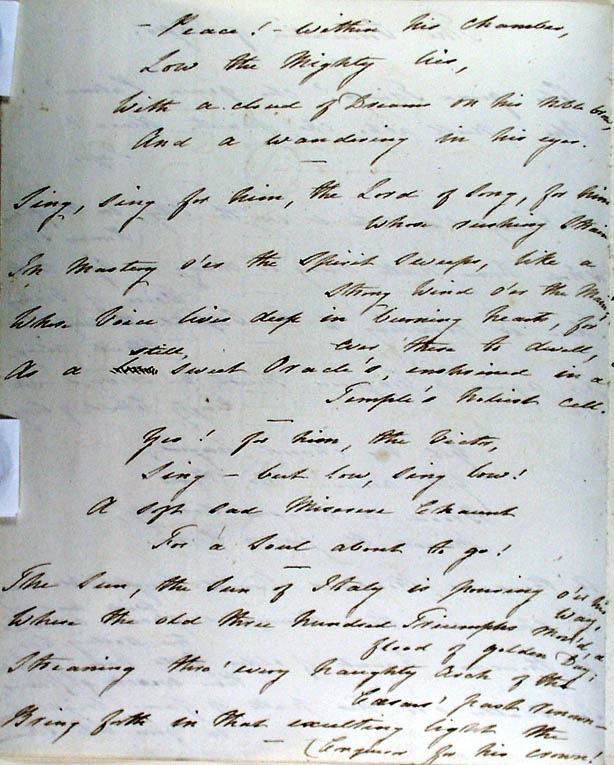 – Peace! – within his chamber,
Low the Mighty lies,
With a cloud of Dreams on his noble brow,
And a wandering in his eyes.
Sing, sing for him, the Lord of Song, for him
Whose rushing Strain
In Mastery o'er the Spirit Sweeps, like a
Strong Wind o'er the Main,
Whose Voice lives deep in burning hearts, for
ever there to dwell,
As a still, sweet Oracle's, enshrined in a
Temple's holiest cell.
Yes! for him, the Victor,
Sing – but low, sing low!
A soft sad Miserere Chaunt
For a Soul about to go!
The Sun, the Sun of Italy is pouring o'er his
Way,
Where the old three hundred Triumphs mov'd, a
flood of golden Day;
Streaming thro' every haughty Arch of the
Cæsars' past renown –
Bring forth in that exulting light the
Conqueror for his crown!